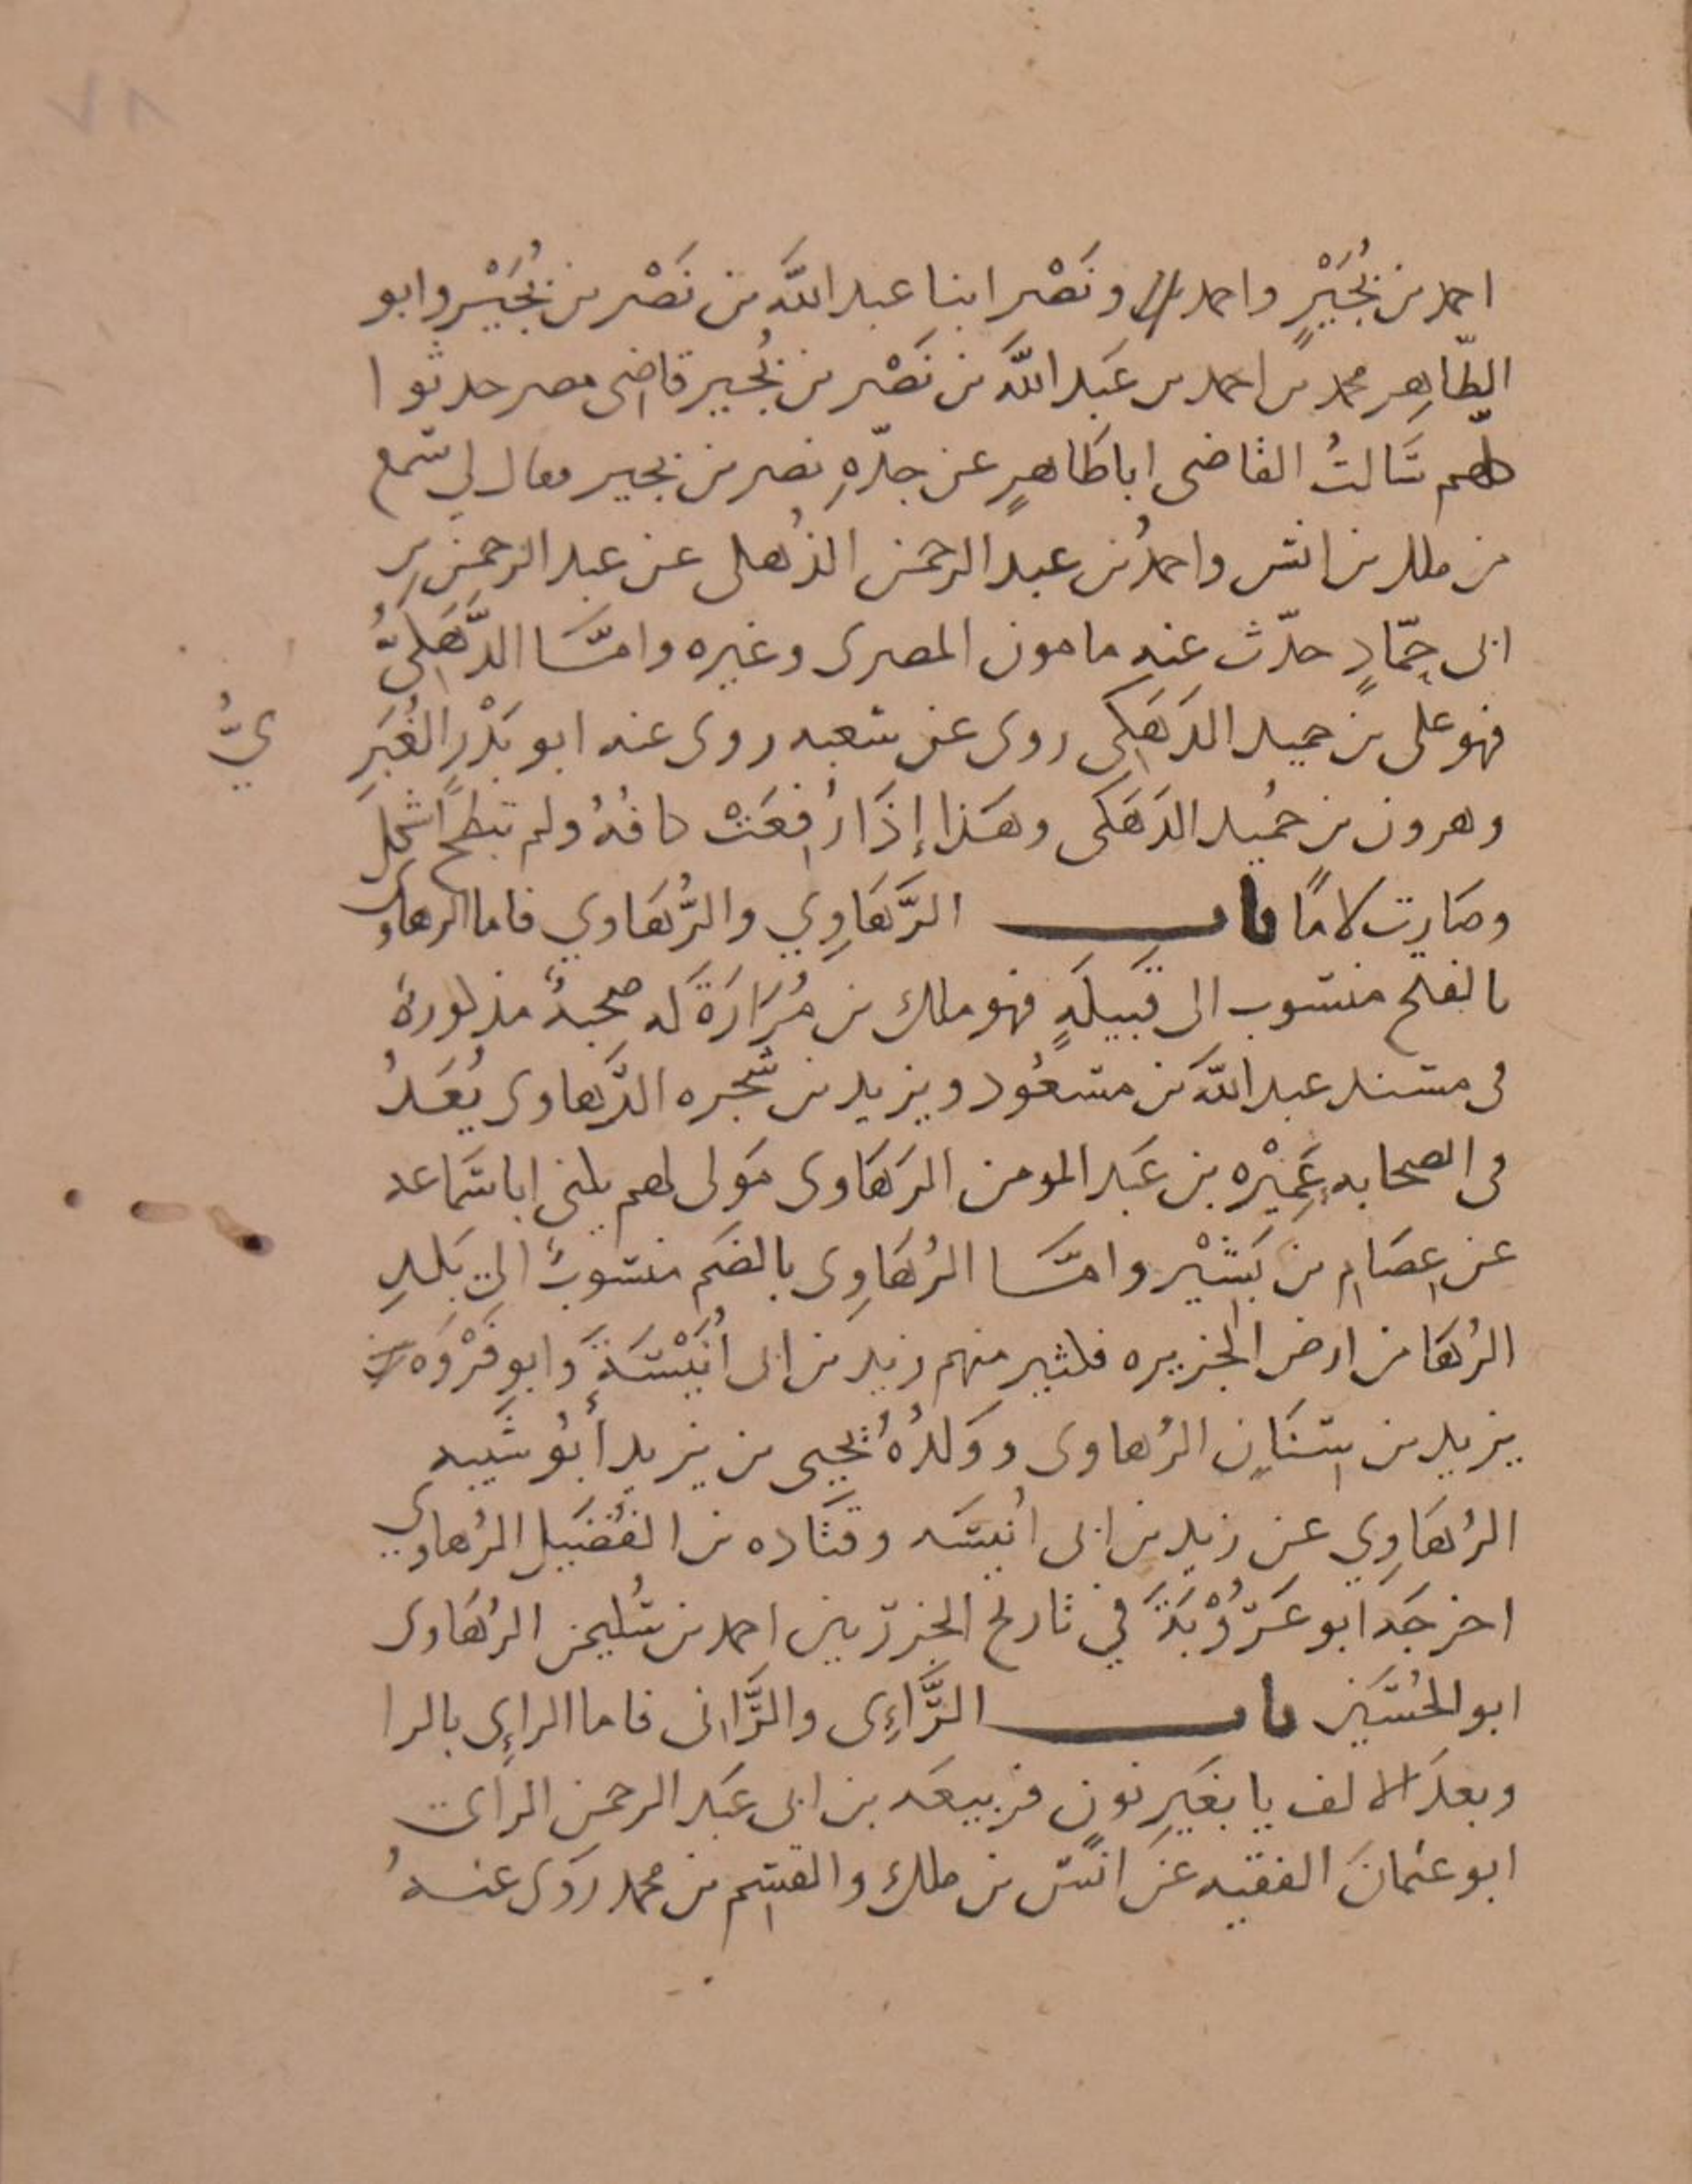 احمد بن بُجَيْرٍ واحمد ونَصْر ابنا عبد اللَّه بن نَصْر بن بُجَيْر وابو
الطّاهِر محمد بن احمد بن عَبد اللَّه بن نَصْر بن بُجَير قاضى مصر حدثوا
كلهم سَالتُ القاضى ابا طَاهرٍ عن جدّهِ نصر بن بجير فقال لي سَمع
من ملك بن انس واحمدُ بن عبد الرحمن الذُهلى عن عبد الرحمن بن
ابى حمّادٍ حدّث عنه مامون المصرى وغيره وامَّا الدَّهَكِيُّ
فهو على بن حميد الدَهَكِى روى عن شعبه روى عنه ابو بَدْرٍ الغُبَرِ
يُّ
وهرون بن حُميد الدَهَكى وهَذا إذَا رُفِعَتْ كافُهُ ولم تبطح اشكل
وصَارت لامًا باب الرَّهَاوِي والرُّهَاوي فاما الرهاوى
بالفتح منسوب الى قَبيلَةٍ فهو ملك بن مُرَارَةَ له صحبةٌ مذكورة
فى مسند عبد اللَّه بن مسعُود ويزيد بن شَجره الرَّهاوى يُعَدُ
فى الصحابه عَمِيْره بن عَبد المومن الرَهَاوى مَولى لهم يكنى ابا سَماعه
عن عِصَام بن بَشيْر وامَّا الرُهَاوِى بالضَم منسُوبٌ الى بَلدِ
الرُهَا من ارض الجزيره فكثير منهم زيد بن ابى أُنَيْسَةَ وابو فَرْوَه
يزيد بن سِنَانٍ الرُهاوى ووَلدُهُ يحيى بن يزيد أبُو شَيبه
الرُهَاوِي عن زيد بن ابى انُيسَه وقَتَاده بن الفُضَيل الرُهاوي
اخرجَه ابو عَرُوْبَةَ في تاريخ الجزريين احمد بن سُليمن الرُهَاوى
ابو الحُسَين باب الرَّاءِى والرَّانى فاما الراءِى بالرا
وبعدَ الالف يا بغَير نونٍ فربيعَه بن ابى عَبد الرحمن الراى
ابو عثمانَ الفقيه عَن انسٍ بن ملك والقسِم بن محمد روَى عنهُ